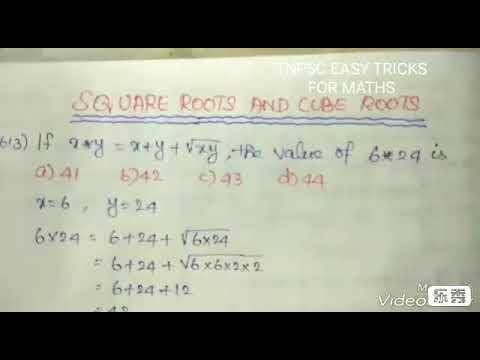 TNPSC EASY TRICKS
FOR MATHS
SQUARE ROOTS AND CUBE ROOTS
613) If x*y = x+y+√xy, the value of 6*24 is
a) 41 b) 42 c) 43 d) 44
x=6, y=24
6*24 = 6+24+√6×24
= 6+24+√6×6×2×2
= 6+24+12
= 42
Video
乐秀